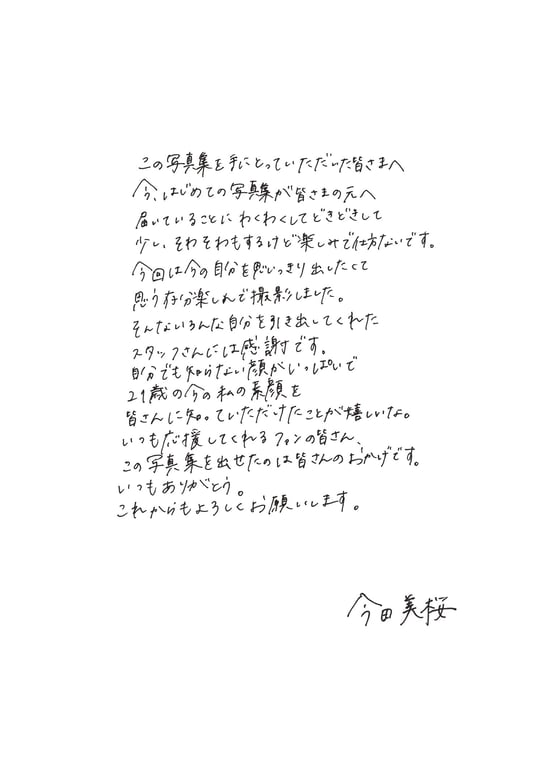 この写真集を手にとっていただいた皆さまへ
今、はじめての写真集が皆さまの元へ
届いていることにわくわくしてどきどきして
少し、そわそわもするけど楽しみで仕方ないです。
今回は今の自分を思いっきり出したくて
思う存分楽しんで撮影しました。
そんないろんな自分を引き出してくれた
スタッフさんには感謝です。
自分でも知らない顔がいっぱいで
21歳の今の私の素顔を
皆さんに知っていただけたことが嬉しいな。
いつも応援してくれるファンの皆さん、
この写真集を出せたのは皆さんのおかげです。
いつもありがとう。
これからもよろしくお願いします。
今田美桜